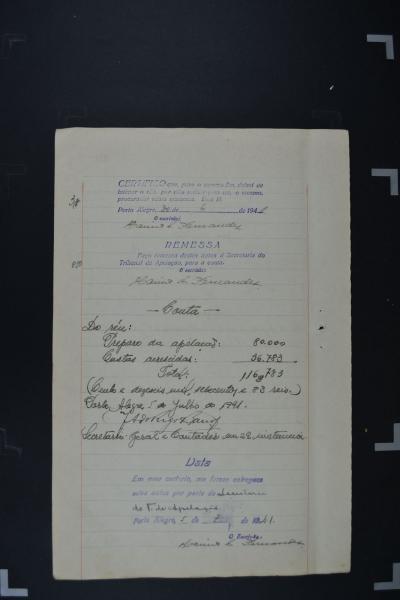 CERTIFICO que, para o mesmo fim, deixei de
procurador nesta instancia. Dou fé.
Porto Alegre, de de 194
O escrivão:
Fernandes
REMESSA
Faço remessa destes autos á Secretaria do
Tribunal de Apelação, para a conta.
O escrivão:
Fernandes
Conta
Do réu:
Preparo da apelação: 80.000
Custas acrescidas: 36.783
Total: 116$783
(Cento e dezeseis mil, setecentos e 83 reis.)
Porto Alegre, 5 de Julho de 1941.
Secretario Geral e Contador em 2ª instancia
Data
Em meu cartorio, me foram entregues
estes autos por parte do Secretario
do T. de Apelação
Porto Alegre, 5 de de 1941.
O Escrivão,
Fernandes